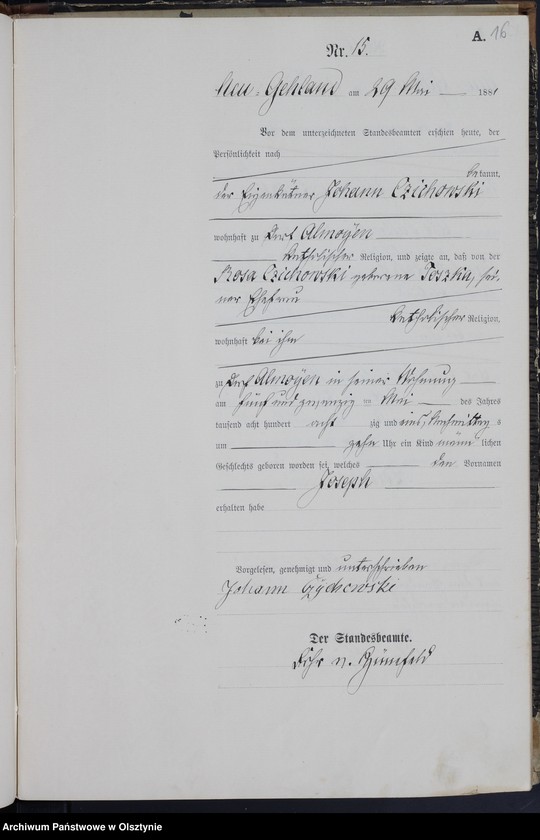 A. 16
Nr. 15.
Neu-Gehland am 29 Mai 1881
Vor dem unterzeichneten Standesbeamten erschien heute, der
Persönlichkeit nach
bekannt,
der Eigenkätner Johann Czichowski
wohnhaft zu Dorf Almoyen
katholischer Religion, und zeigte an, daß von der
Rosa Czichowski geborene Toszka, sei-
ner Ehefrau
katholischer Religion,
wohnhaft bei ihm
zu Dorf Almoyen in seiner Wohnung
am fünf und zwanzig ten Mai des Jahres
tausend acht hundert acht zig und eins, Nachmittag s
um zehn Uhr ein Kind männ lichen
Geschlechts geboren worden sei, welches den Vornamen
Joseph
erhalten habe
Vorgelesen, genehmigt und unterschrieben
Johann Czychowski
Der Standesbeamte.
Archiwum Państwowe w Olsztynie